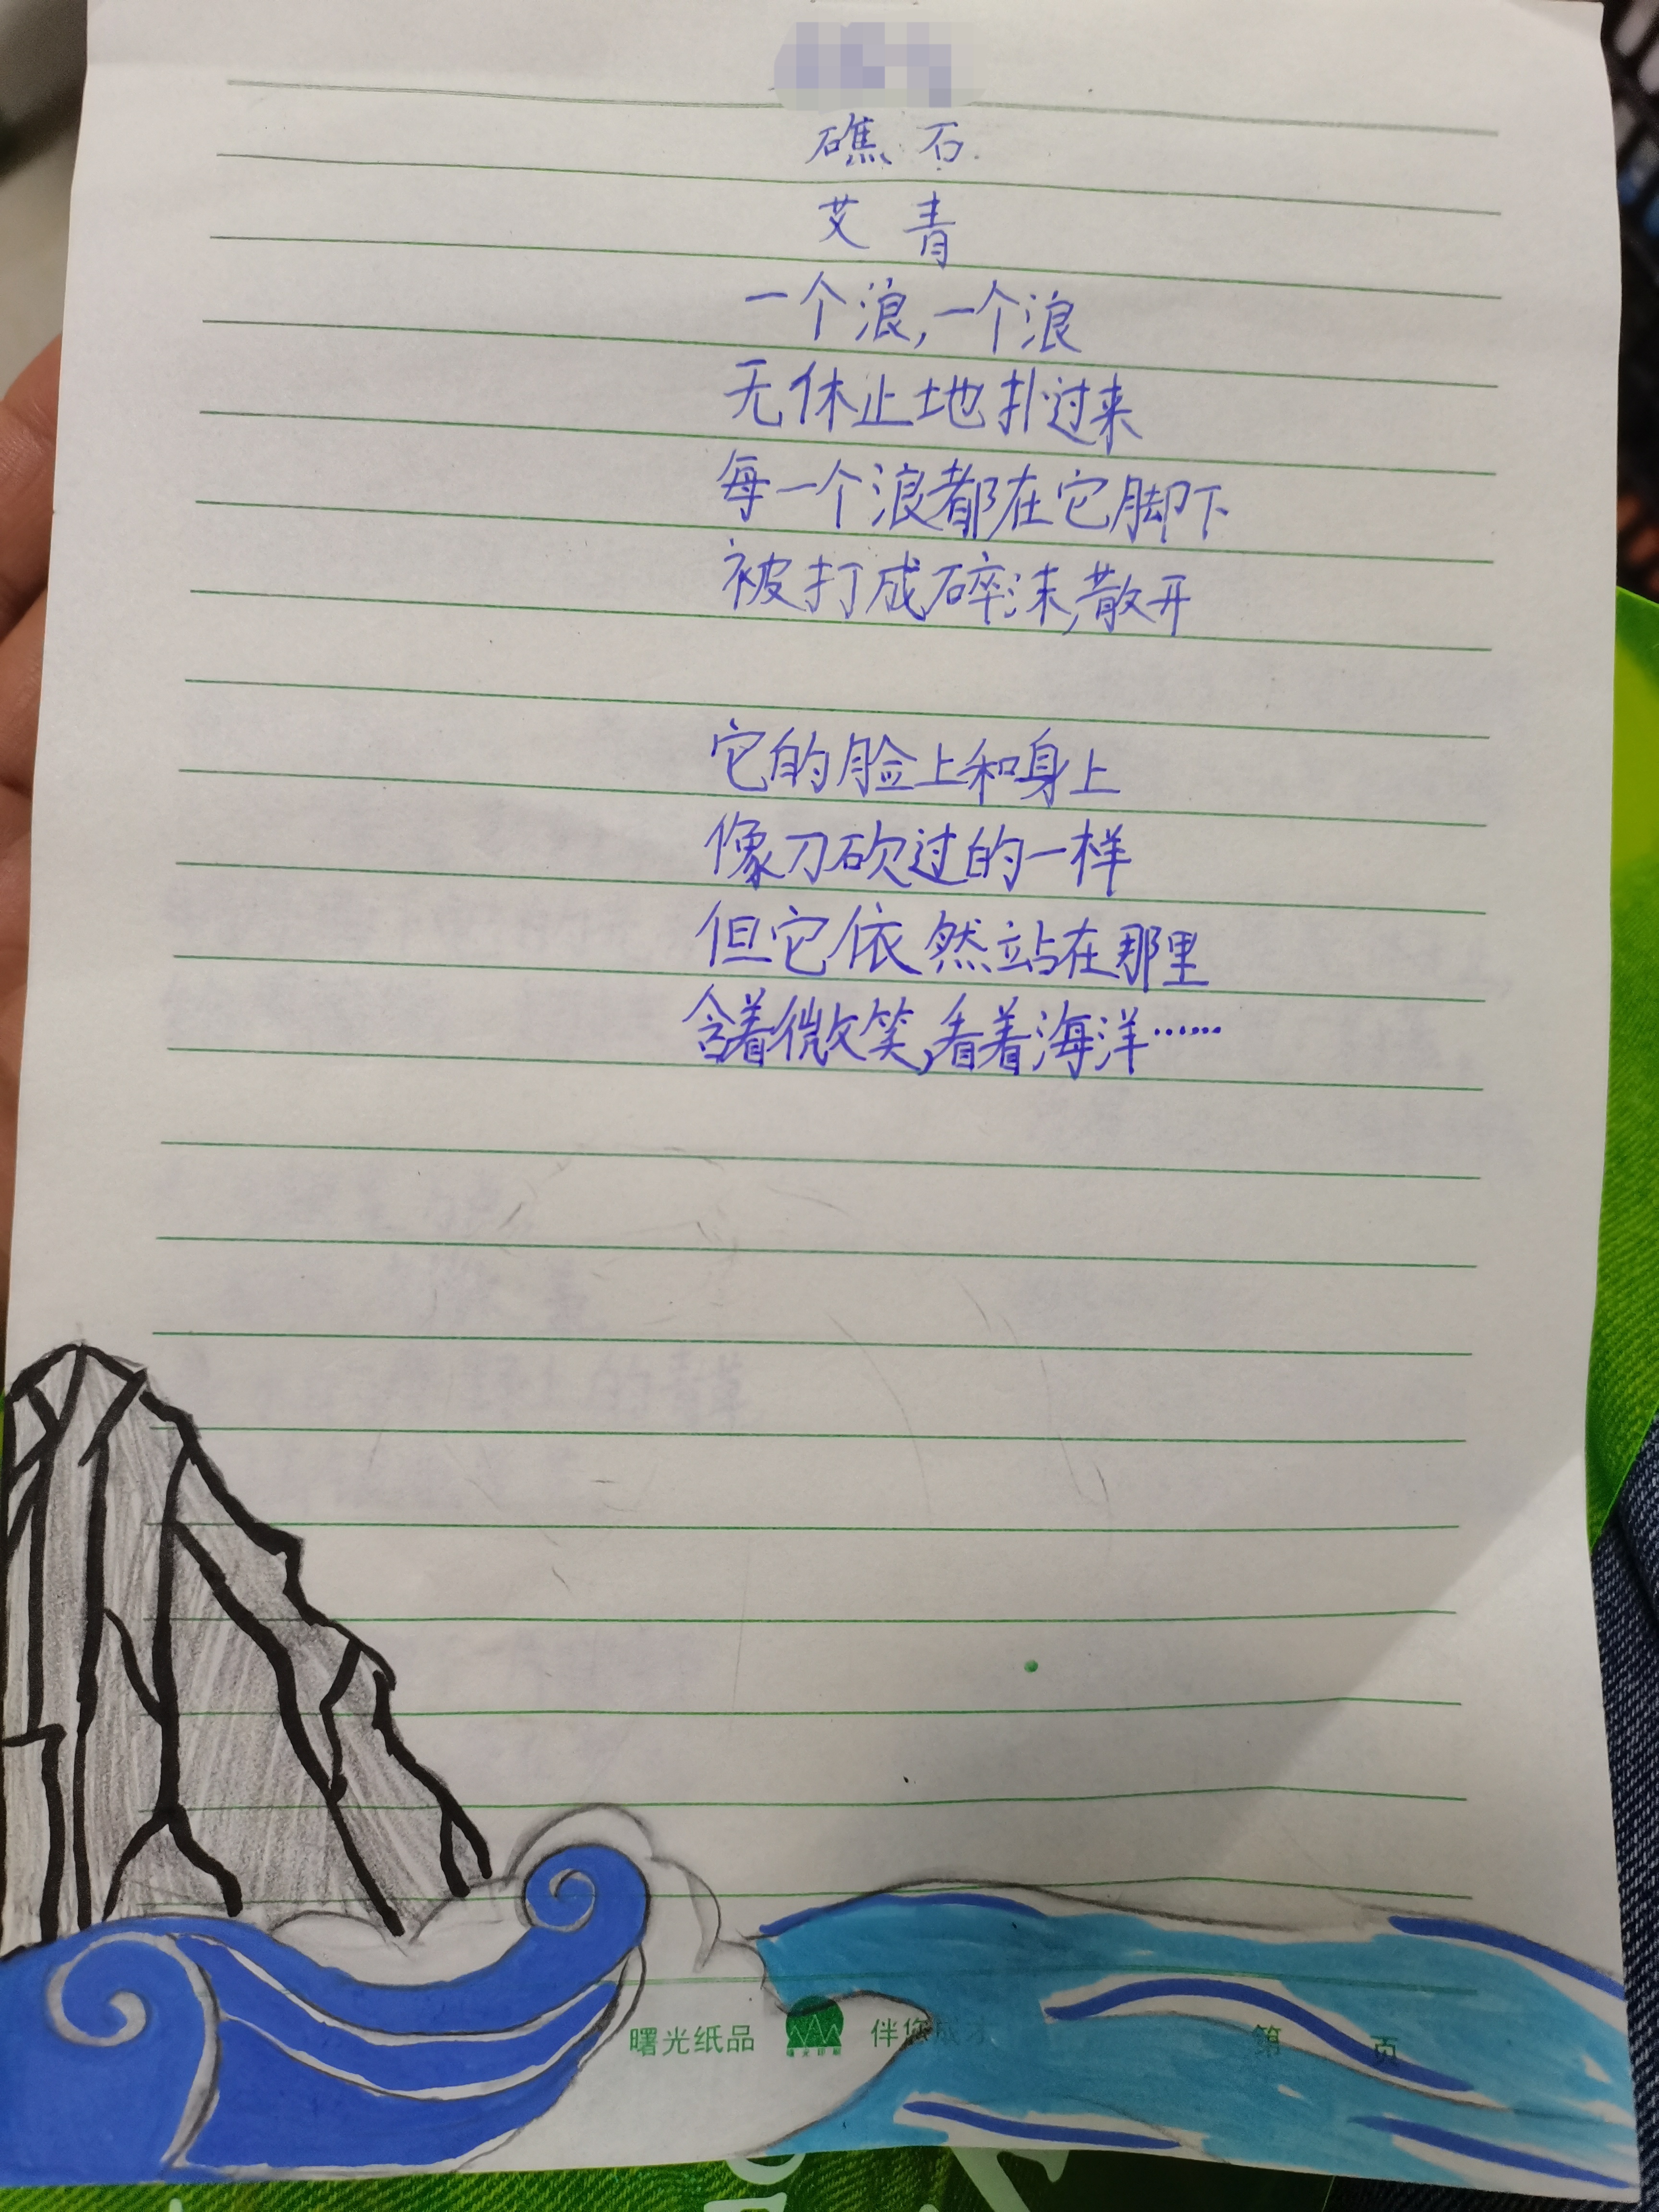 礁石
艾青
一个浪,一个浪
无休止地扑过来
每一个浪都在它脚下
被打成碎沫,散开
它的脸上和身上
像刀砍过的一样
但它依然站在那里
含着微笑,看着海洋……
曙光纸品 伴您成才 第 页